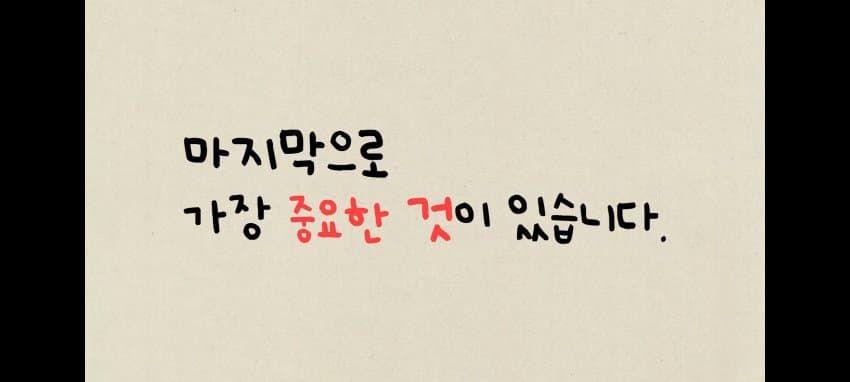 마지막으로
가장 중요한 것이 있습니다.